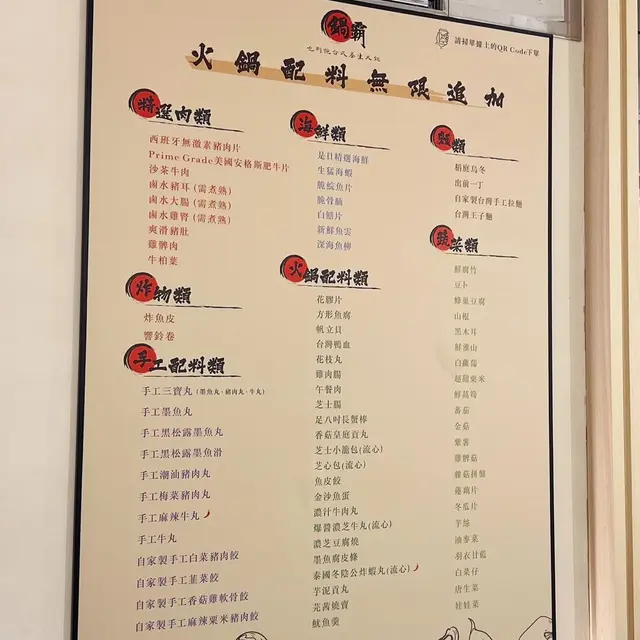 鍋霸
請掃單據上的QR Code下單
火鍋配料無限追加
精選肉類
西班牙無激素豬肉片
Prime Grade美國安格斯肥牛片
沙茶牛肉
鹵水豬耳 (需煮熟)
鹵水大腸 (需煮熟)
鹵水雞腎 (需煮熟)
爽滑豬肚
雞髀肉
牛柏葉
炸物類
炸魚皮
響鈴卷
手工配料類
手工三寶丸 (墨魚丸、豬肉丸、牛丸)
手工墨魚丸
手工黑松露墨魚丸
手工黑松露墨魚滑
手工潮汕豬肉丸
手工梅菜豬肉丸
手工麻辣牛丸
手工牛丸
自家製手工白菜豬肉餃
自家製手工韮菜餃
自家製手工香菇雞軟骨餃
自家製手工麻辣粟米豬肉餃
海鮮類
是日精選海鮮
生猛海蝦
脆鯇魚片
脆骨腩
白鱔片
新鮮魚雲
深海魚柳
火鍋配料類
花膠片
方形魚腐
帆立貝
台灣鴨血
花枝丸
雞肉腸
午餐肉
芝士腸
足八吋長蟹棒
香菇皇庭貢丸
芝士小籠包(流心)
芝心包(流心)
魚皮餃
金沙魚蛋
濃汁牛肉丸
爆醬濃芝牛丸(流心)
濃芝豆腐燒
墨魚腐皮條
泰國冬陰公炸蝦丸(流心)
芋泥貢丸
芫茜燒賣
魷魚羹
麵類
稻庭烏冬
出前一丁
自家製台灣手工拉麵
台灣王子麵
蔬菜類
鮮腐竹
豆卜
蜂巢豆腐
山根
黑木耳
鮮淮山
白蘿蔔
超甜粟米
鮮萵筍
蕃茄
金菇
紫薯
雞髀菇
雜菇拼盤
蓮藕片
冬瓜片
芋絲
油麥菜
羽衣甘藍
白菜仔
唐生菜
娃娃菜